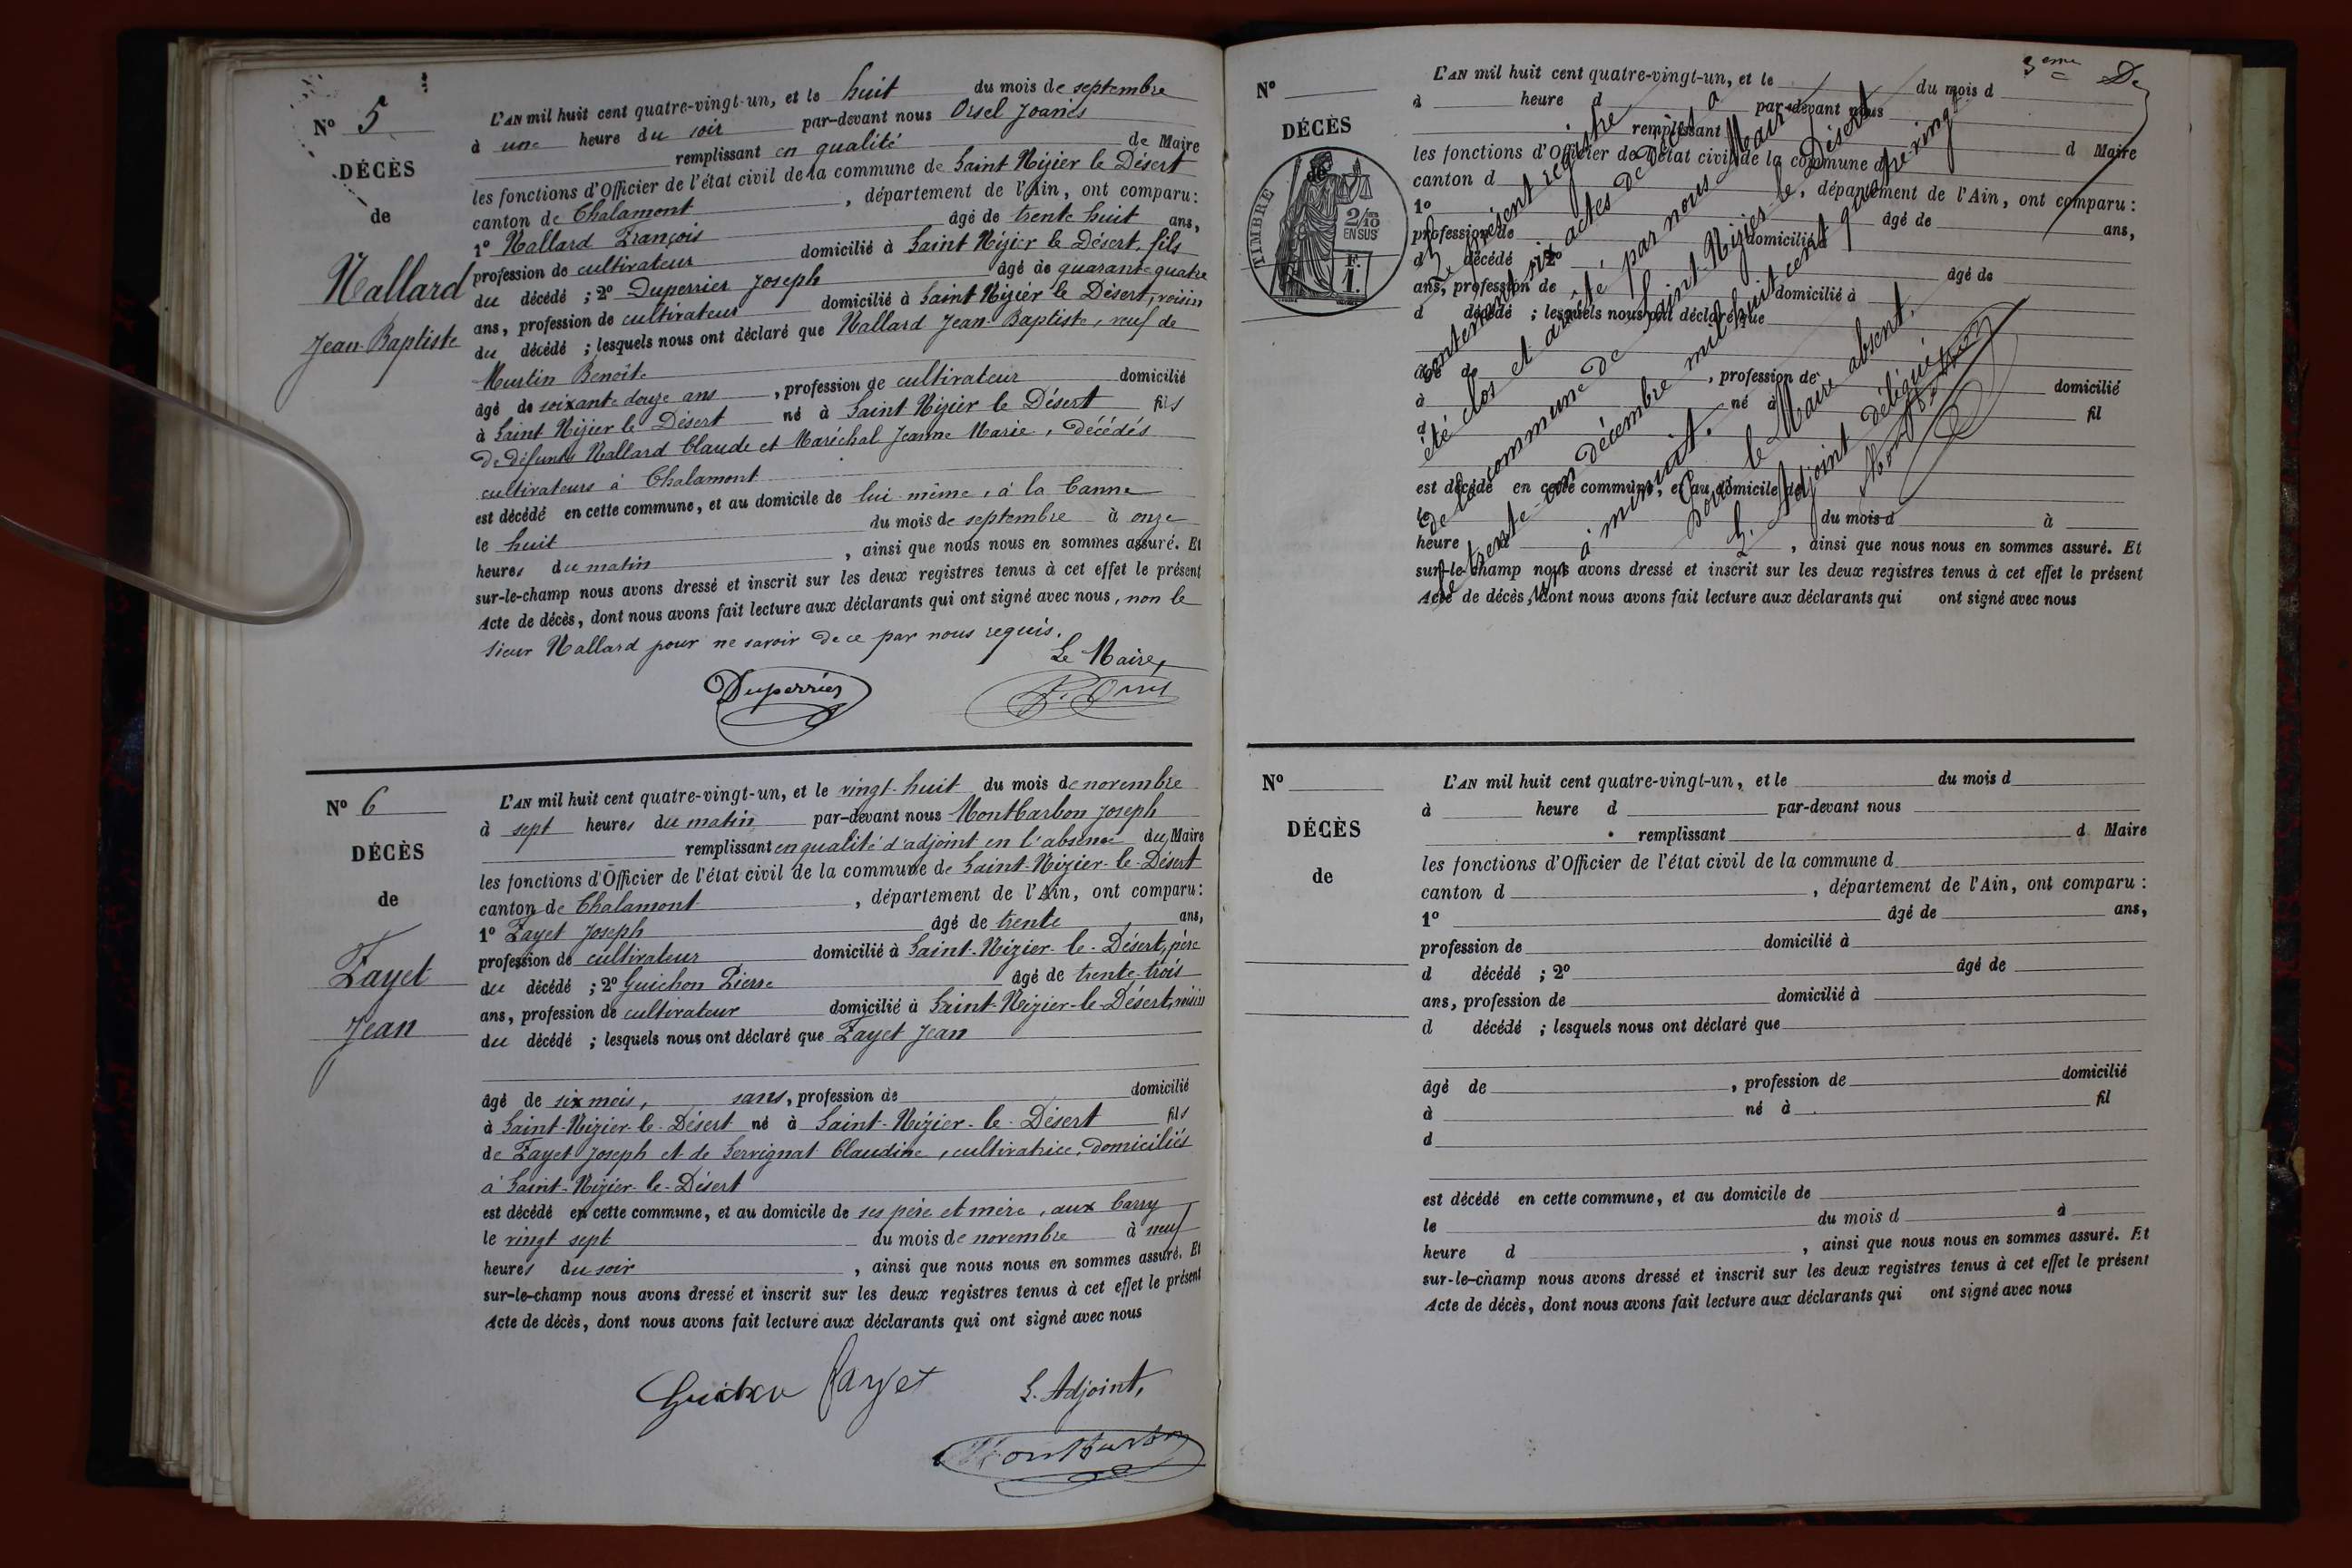 N° 5
DÉCÈS
de
Nallard
Jean-Baptiste
L'AN mil huit cent quatre-vingt-un, et le huit du mois de septembre
à une heure du soir par-devant nous Orsel Joanès
remplissant en qualité de Maire
les fonctions d'Officier de l'état civil de la commune de Saint Nizier le Désert
canton de Chalamont, département de l'Ain, ont comparu:
1° Nallard François âgé de trente huit ans,
profession de cultivateur domicilié à Saint Nizier le Désert, fils
du décédé ; 2° Duperrier Joseph âgé de quarante quatre
ans, profession de cultivateur domicilié à Saint Nizier le Désert, voisin
du décédé ; lesquels nous ont déclaré que Nallard Jean-Baptiste, veuf de
Benoîte
âgé de soixante douze ans, profession de cultivateur domicilié
à Saint Nizier le Désert né à Saint Nizier le Désert fils
de défunts Nallard Claude et Maréchal Jeanne Marie, décédés
cultivateurs à Chalamont
est décédé en cette commune, et au domicile de lui même, à la Canne
le huit du mois de septembre à onze
heures du matin, ainsi que nous nous en sommes assuré. Et
sur-le-champ nous avons dressé et inscrit sur les deux registres tenus à cet effet le présent
Acte de décès, dont nous avons fait lecture aux déclarants qui ont signé avec nous, non le
sieur Nallard pour ne savoir de ce par nous requis.
Le Maire,
Duperrier
N° 6
DÉCÈS
de
Fayet
Jean
L'AN mil huit cent quatre-vingt-un, et le vingt-huit du mois de novembre
à sept heures du matin par-devant nous Montbarbon Joseph
remplissant en qualité d'adjoint en l'absence du Maire
les fonctions d'Officier de l'état civil de la commune de Saint-Nizier-le-Désert
canton de Chalamont, département de l'Ain, ont comparu:
1° Fayet Joseph âgé de trente ans,
profession de cultivateur domicilié à Saint-Nizier-le-Désert, père
du décédé ; 2° Guichon Pierre âgé de trente-trois
ans, profession de cultivateur domicilié à Saint-Nizier-le-Désert, voisin
du décédé ; lesquels nous ont déclaré que Fayet Jean
âgé de six mois, sans, profession de domicilié
à Saint-Nizier-le-Désert né à Saint-Nizier-le-Désert fils
de Fayet Joseph et de Servignat Claudine, cultivatrice, domiciliés
à Saint-Nizier-le-Désert
est décédé en cette commune, et au domicile de ses père et mère, aux Carry
le vingt sept du mois de novembre à neuf
heures du soir, ainsi que nous nous en sommes assuré. Et
sur-le-champ nous avons dressé et inscrit sur les deux registres tenus à cet effet le présent
Acte de décès, dont nous avons fait lecture aux déclarants qui ont signé avec nous
Guichon Fayet L'Adjoint,
Montbarbon
3eme
N°
DÉCÈS
TIMBRE
2/10
EN SUS
1 F.
L'AN mil huit cent quatre-vingt-un, et le du mois d
à heure d par-devant nous
remplissant d Maire
les fonctions d'Officier de l'état civil de la commune d
canton d, département de l'Ain, ont comparu :
1° âgé de ans,
profession de domicilié à
d décédé ; 2° âgé de
ans, profession de domicilié à
d décédé ; lesquels nous ont déclaré que
âgé de, profession de domicilié
à né à fil
d
est décédé en cette commune, et au domicile de
le du mois d à
heure d, ainsi que nous nous en sommes assuré. Et
sur-le-champ nous avons dressé et inscrit sur les deux registres tenus à cet effet le présent
Acte de décès, dont nous avons fait lecture aux déclarants qui ont signé avec nous
Le présent registre
contenant six actes de décès a
été clos et arrêté par nous Maire
de la commune de Saint-Nizier-le-Désert
le trente-un décembre mil huit cent quatre-vingt-
un à minuit.
Pour le Maire absent,
L'Adjoint délégué
Montbarbon
N°
DÉCÈS
de
L'AN mil huit cent quatre-vingt-un, et le du mois d
à heure d par-devant nous
remplissant d Maire
les fonctions d'Officier de l'état civil de la commune d
canton d, département de l'Ain, ont comparu :
1° âgé de ans,
profession de domicilié à
d décédé ; 2° âgé de
ans, profession de domicilié à
d décédé ; lesquels nous ont déclaré que
âgé de, profession de domicilié
à né à fil
d
est décédé en cette commune, et au domicile de
le du mois d à
heure d, ainsi que nous nous en sommes assuré. Et
sur-le-champ nous avons dressé et inscrit sur les deux registres tenus à cet effet le présent
Acte de décès, dont nous avons fait lecture aux déclarants qui ont signé avec nous